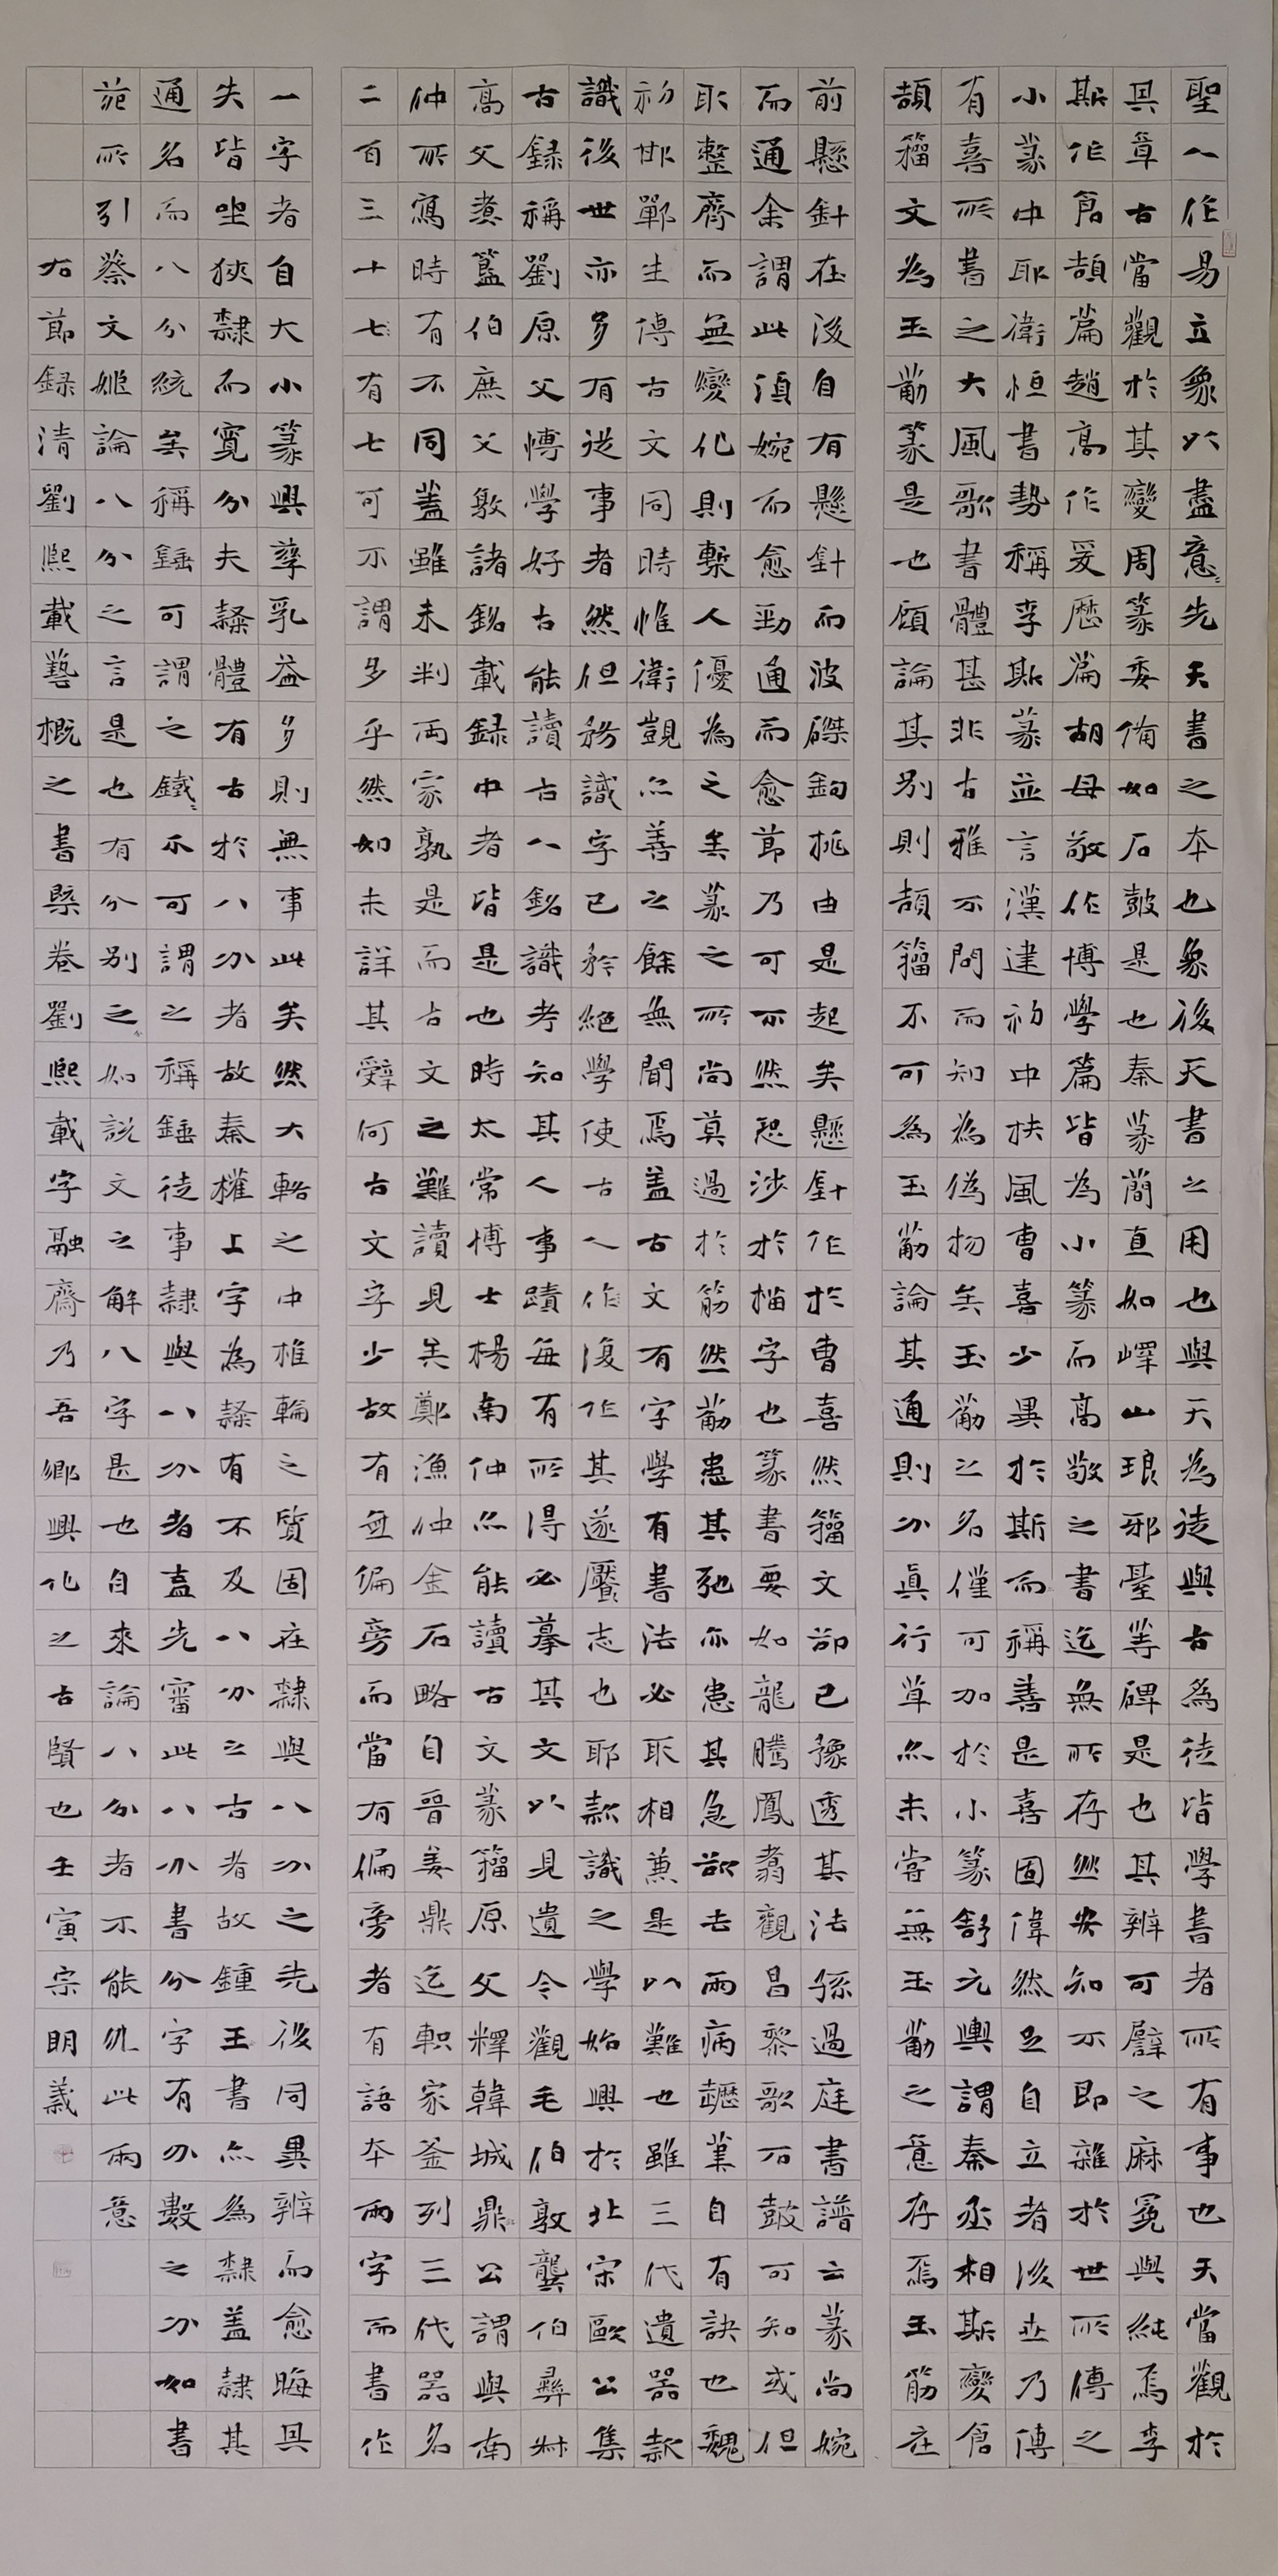 聖人作易立象以盡意〻先天書之本也象後天書之用也與天為徒與古為徒皆學書者所有事也天當觀於
其章古當觀於其變周篆委備如石鼓是也秦篆簡直如嶧山琅邪臺等碑是也其辨可譬之麻冕與純焉李
斯作倉頡篇趙高作爰歷篇胡母敬作博學篇皆為小篆而高敬之書迄無所存然安知不即雜於世所傳之
小篆中耶衛恒書勢稱李斯篆並言漢建初中扶風曹喜少異於斯而稱善是喜固偉然足自立者後世乃傳
有喜所書之大風歌書體甚非古雅不問而知為偽物矣玉筯之名僅可加於小篆舒元輿謂秦丞相斯變倉
頡籀文為玉筯篆是也顧論其別則頡籀不可為玉筯論其通則分真行草亦未嘗無玉筯之意存焉玉筯在
前懸針在後自有懸針而波磔鉤挑由是起矣懸針作於曹喜然籀文卻已豫透其法孫過庭書譜云篆尚婉
而通余謂此須婉而愈勁通而愈節乃可不然恐涉於描字也篆書要如龍騰鳳翥觀昌黎歌石鼓可知或但
取整齊而無變化則槧人優為之矣篆之所尚莫過於筋然筯患其弛亦患其急欲去兩病趯筆自有訣也魏
初邯鄲生傳古文同時惟衛覬亦善之餘無聞焉蓋古文有字學有書法必取相兼是以難也雖三代遺器款
識後世亦多有從事者然但務識字已矜絕學使古人作復作其遂饜志也耶款識之學始興於北宋歐公集
古錄稱劉原父博學好古能讀古人銘識考知其人事蹟每有所得必摹其文以見遺今觀毛伯敦龔伯彝叔
高父煑簋伯庶父敦諸銘載錄中者皆是也時太常博士楊南仲亦能讀古文篆籀原父釋韓城鼎公謂與南
仲所寫時有不同蓋雖未判兩家孰是而古文之難讀見矣鄭漁仲金石略自晉姜鼎迄軹家釜列三代器名
二百三十七有七可不謂多乎然如未詳其辭何古文字少故有無偏旁而當有偏旁者有語本兩字而書作
一字者自大小篆興孳乳益多則無事此矣然大輅之中椎輪之質固在隸與八分之先後同異辨而愈晦其
失皆坐狹隸而寬分夫隸體有古於八分者故秦權上字為隸有不及八分之古者故鍾王書亦為隸蓋隸其
通名而八分統矣稱錘可謂之鐵〻不可謂之稱錘徒事隸與八分者盍先審此八分書分字有分數之分如書
苑所引蔡文姬論八分之言是也有分別之分如說文之解八字是也自來論八分者不能外此兩意
右節錄清劉熙載藝概之書槩卷劉熙載字融齋乃吾鄉興化之古賢也壬寅宗明義